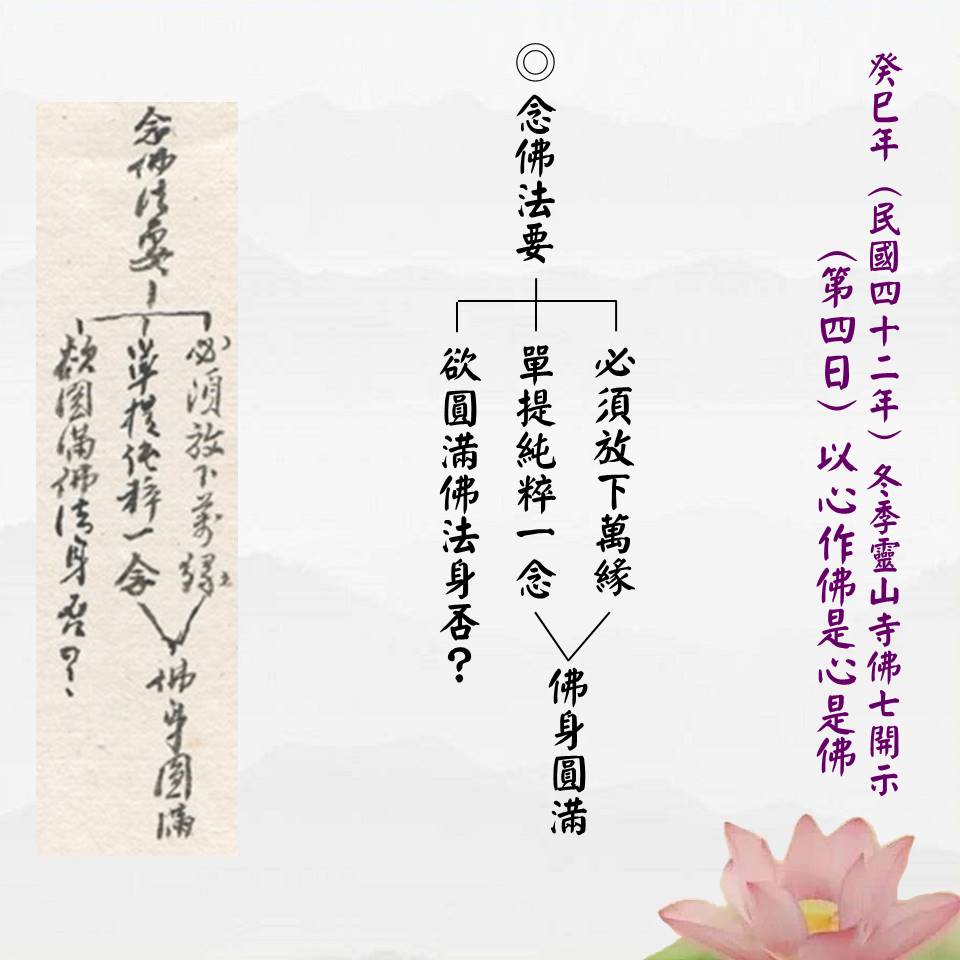 癸巳年（民國四十二年）冬季靈山寺佛七開示
（第四日）以心作佛是心是佛
◎念佛法要
必須放下萬緣
單提純粹一念
佛身圓滿
欲圓滿佛法身否？
念佛法要
必須放下萬緣
單提純粹一念
佛身圓滿
欲圓滿佛法身否？